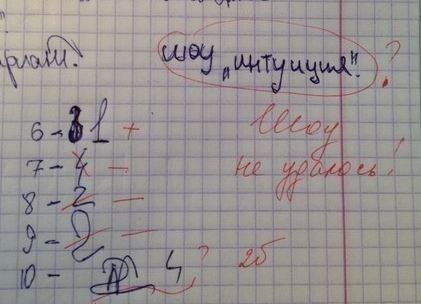 шоу „интуиция". ?
6 - 1 +
Шоу
7 - 4 -
не удалось!
8 - 2 -
9 - 2 -
10 - 4 ? 2б